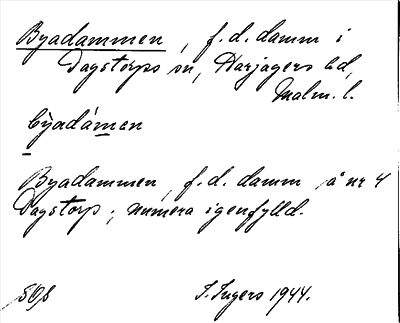 Byadammen, f.d. damm i
Dagstorps sn, Harjagers hd,
Malm. l.
býadámen
Byadammen, f.d. damm å nr 4
Dagstorp; numera igenfylld.
I. Ingers 1944.